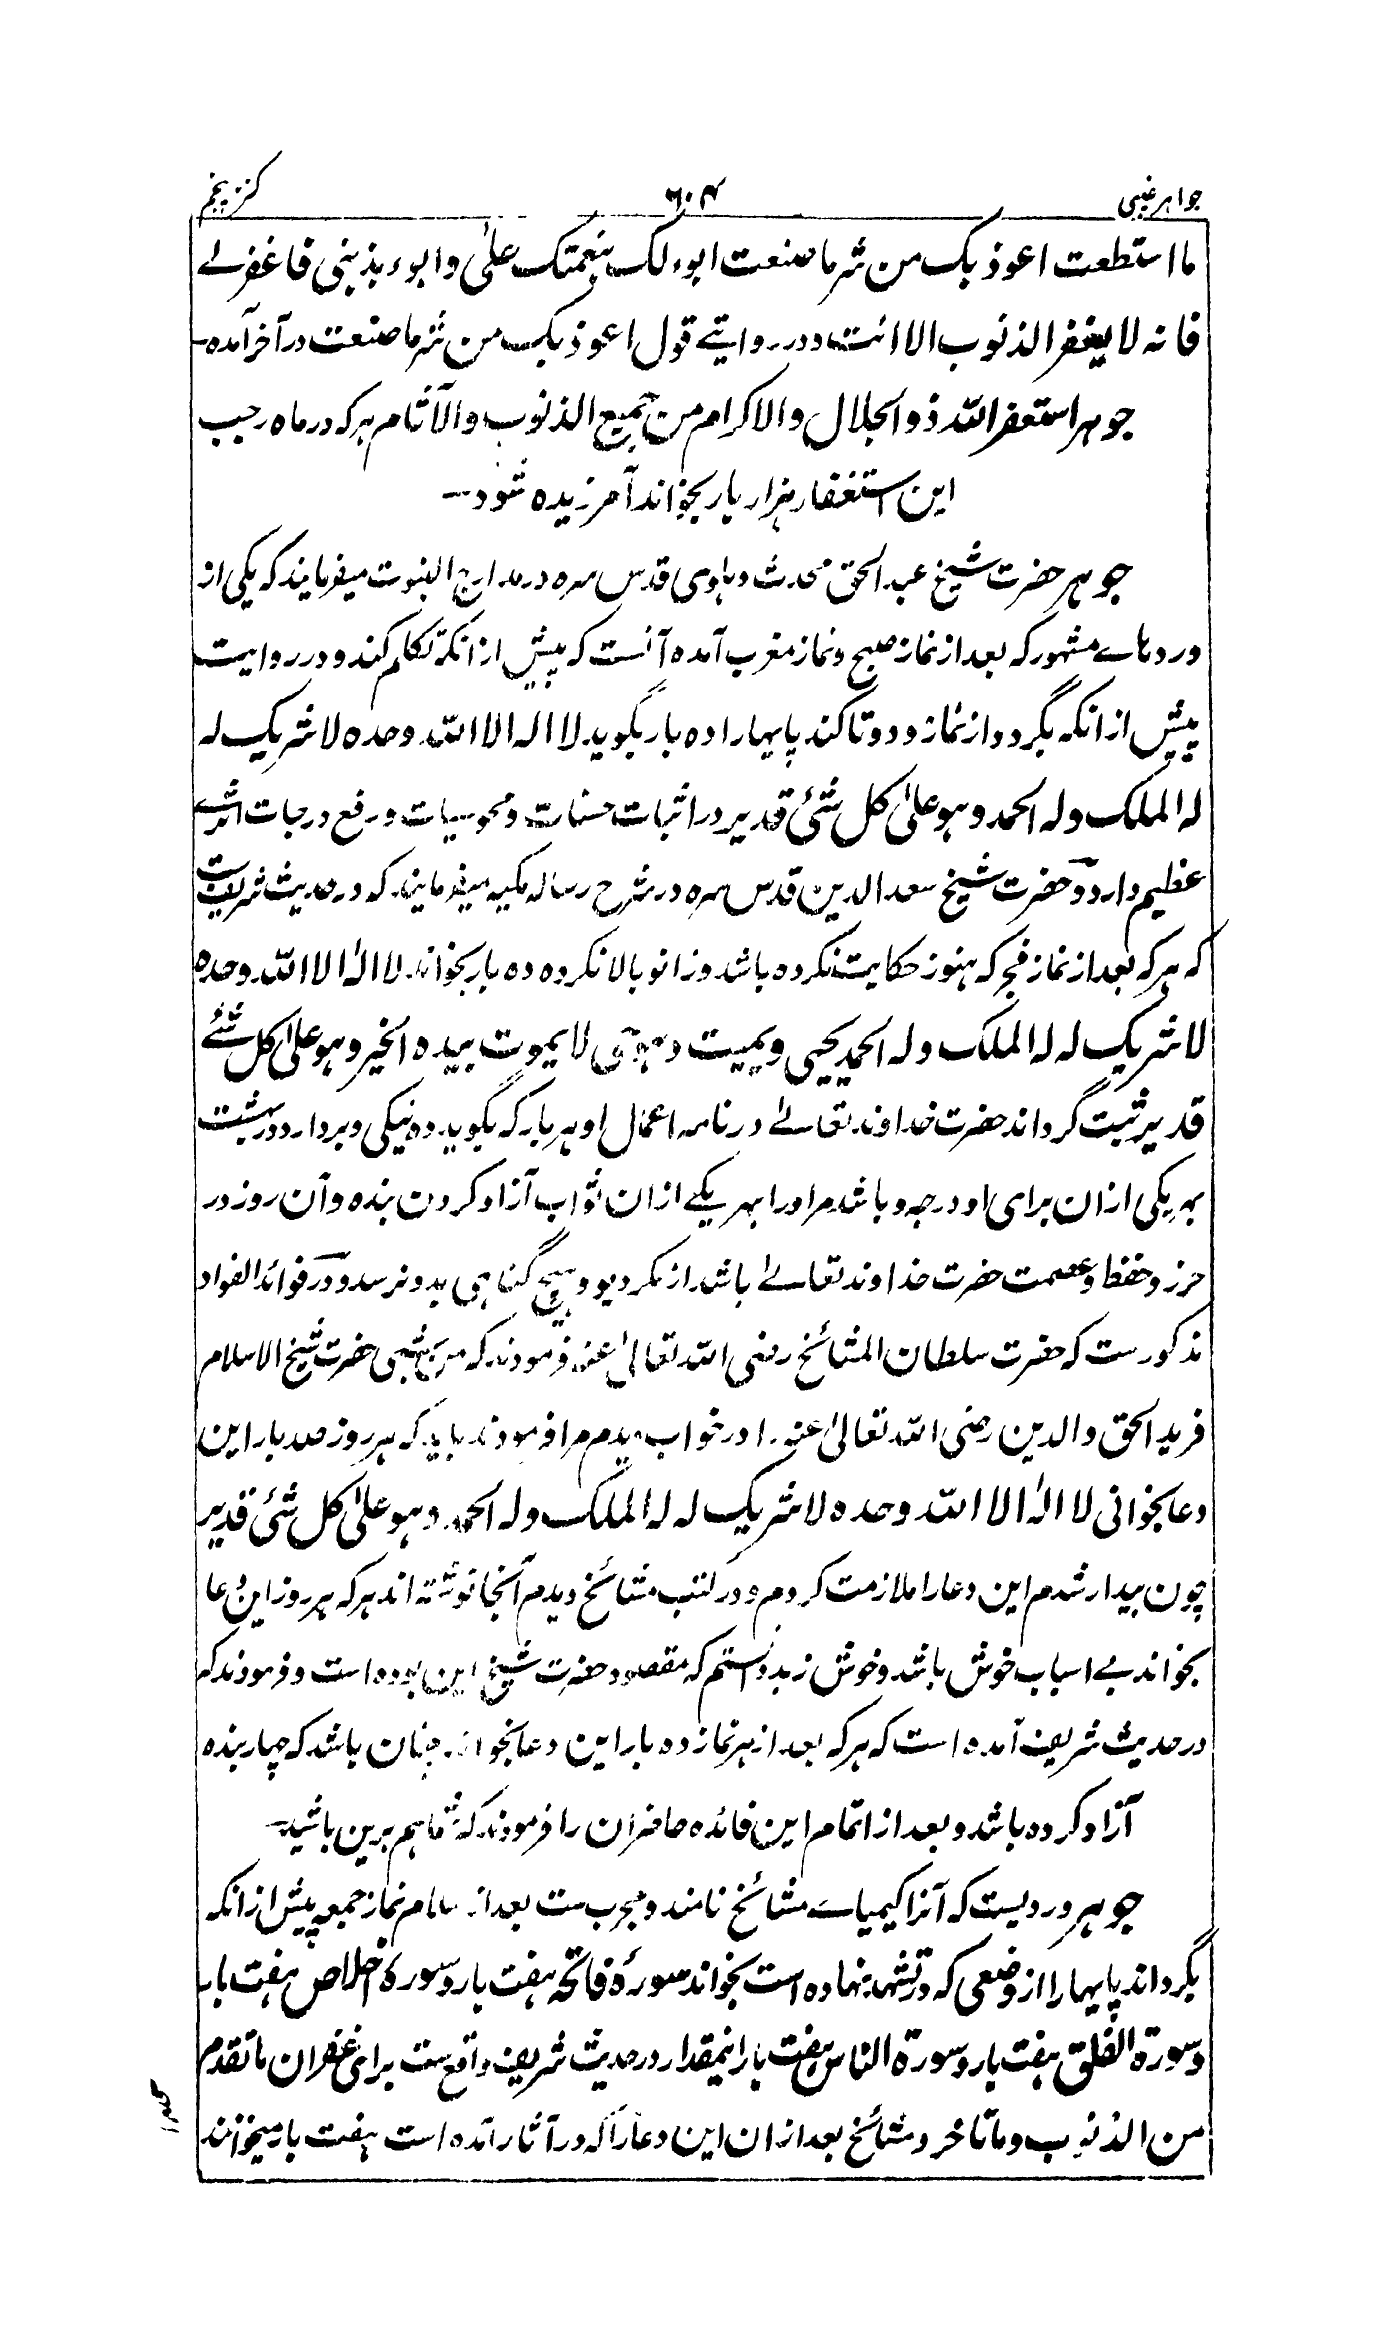 جواہر غیبی
۶۰۴
کنز پنجم
ما استطعت اعوذ بک من شر ما صنعت ابوء لک بنعمتک علیّ و ابوء بذنبی فاغفر لے
فانہ لا یغفر الذنوب الا انت و در روایتے قول اعوذ بک من شر ما صنعت در آخر آمدہ۔
جوہر استغفر اللہ ذو الجلال والاکرام من جمیع الذنوب والآثام ہر کہ در ماہ رجب
این استغفار ہزار بار بخواند آمرزیدہ شود۔
جوہر حضرت شیخ عبد الحق محدث دہلوی قدس سرہ در مدارج النبوت میفرمایند کہ یکی از
وردہاے مشہور کہ بعد از نماز صبح و نماز مغرب آمدہ آنست کہ پیش از انکہ تکلم کند و در روایت
پیش از انکہ بگردد از نماز و دوتا کند پایہا را دہ بار بگوید لا الہ الا اللہ وحدہ لا شریک لہ
لہ الملک ولہ الحمد وہو علیٰ کل شئی قدیر در اثبات حسنات و محو سیات و رفع درجات اثرے
عظیم دارد و حضرت شیخ سعد الدین قدس سرہ در شرح رسالہ مکیہ میفرمایند کہ در حدیث شریف ست
کہ ہر کہ بعد از نماز فجر کہ ہنوز حکایت نکردہ باشد و زانو بالا نکردہ دہ بار بخواند لا الہٰ الا اللہ وحدہ
لا شریک لہ لہ الملک ولہ الحمد یحیی ویمیت وہو حی لا یموت بیدہ الخیر وہو علیٰ کل شئے
قدیر ثبت گرداند حضرت خداوند تعالےٰ در نامہ اعمال او ہر بار کہ بگوید دہ نیکی و بردارد در بہشت
بہر یکی ازان برای او درجہ و باشد مر او را بہر یکے ازان ثواب آزاد کردن بندہ و آن روز در
حرز و حفظ و عصمت حضرت خداوند تعالےٰ باشد از مکر دیو و ہیچ گناہی بدو نرسد و در فوائد الفواد
مذکورست کہ حضرت سلطان المشائخ رضی اللہ تعالیٰ عنہ فرمودند کہ من شبی حضرت شیخ الاسلام
فرید الحق والدین رضی اللہ تعالیٰ عنہ را در خواب دیدم مرا فرمودند باید کہ ہر روز صد بار این
دعا بخوانی لا الہٰ الا اللہ وحدہ لا شریک لہ لہ الملک ولہ الحمد وہو علیٰ کل شئی قدیر
چون بیدار شدم این دعا را ملازمت کردم و در کتب مشائخ دیدم آنجا نوشتہ اند ہر کہ ہر روز این دعا
بخواند بے اسباب خوش باشد و خوش زید دانستم کہ مقصود حضرت شیخ این بودہ است و فرمودند کہ
در حدیث شریف آمدہ است کہ ہر کہ بعد از ہر نماز دہ بار این دعا بخواند چنان باشد کہ چہار بندہ
آزاد کردہ باشد و بعد از اتمام این فائدہ حاضران را فرمودند کہ شما ہم برین باشید۔
جوہر وردیست کہ آنرا کیمیاے مشائخ نامند و مجرب ست بعد از سلام نماز جمعہ پیش از انکہ
بگرداند پایہا را از وضعی کہ در تشہد نہادہ است بخواند سورۂ فاتحہ ہفت بار و سورۂ اخلاص ہفت بار
و سورۃ الفلق ہفت بار و سورۃ الناس ہفت بار اینمقدار در حدیث شریف واقع ست برای غفران ما تقدم
من الذنوب وما تأخر و مشائخ بعد ازان این دعا را کہ در آثار آمدہ است ہفت بار میخوانند